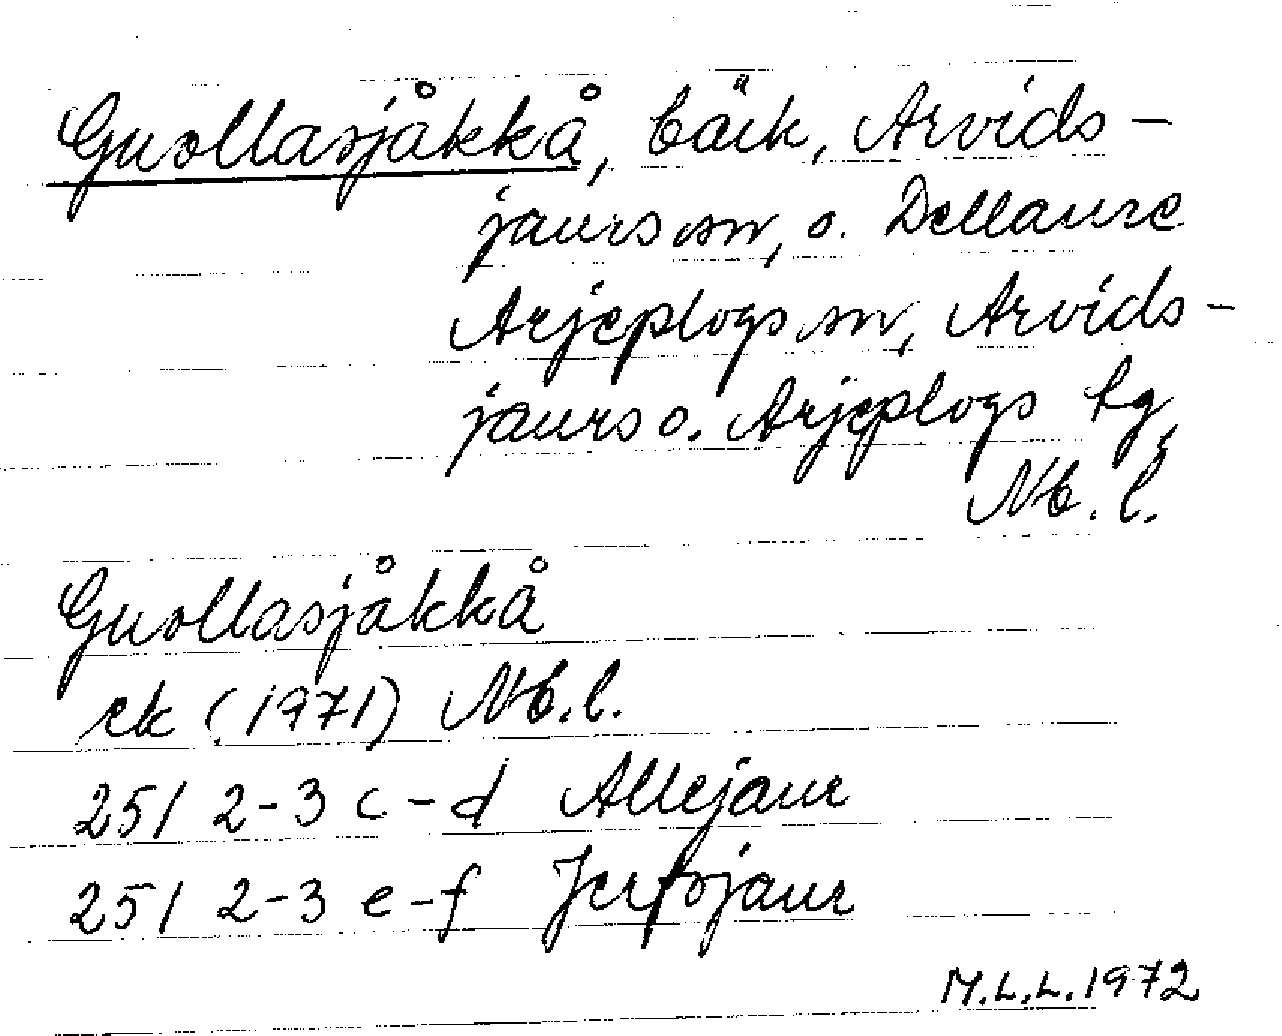 Guollasjåkkå, bäck, Arvids-
jaurs sn, o. Dellaure
Arjeplogs sn, Arvids-
jaurs o. Arjeplogs tg,
Nb. l.
Guollasjåkkå
ek (1971) Nb. l.
251 2-3 c-d Allejaur
251 2-3 e-f Jerfsjaur
M.L.L. 1972